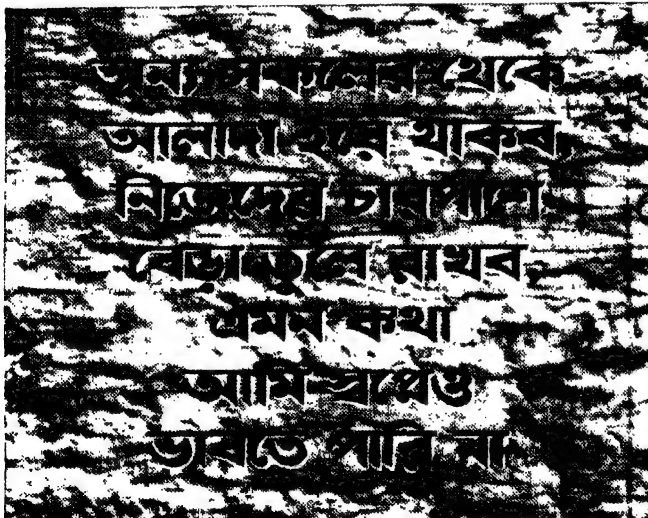 অন্য সকলের থেকে
আলাদা হয়ে থাকব,
নিজেদের চারপাশে
বেড়া তুলে রাখব,
এমন কথা
আমি স্বপ্নেও
ভাবতে পারি না